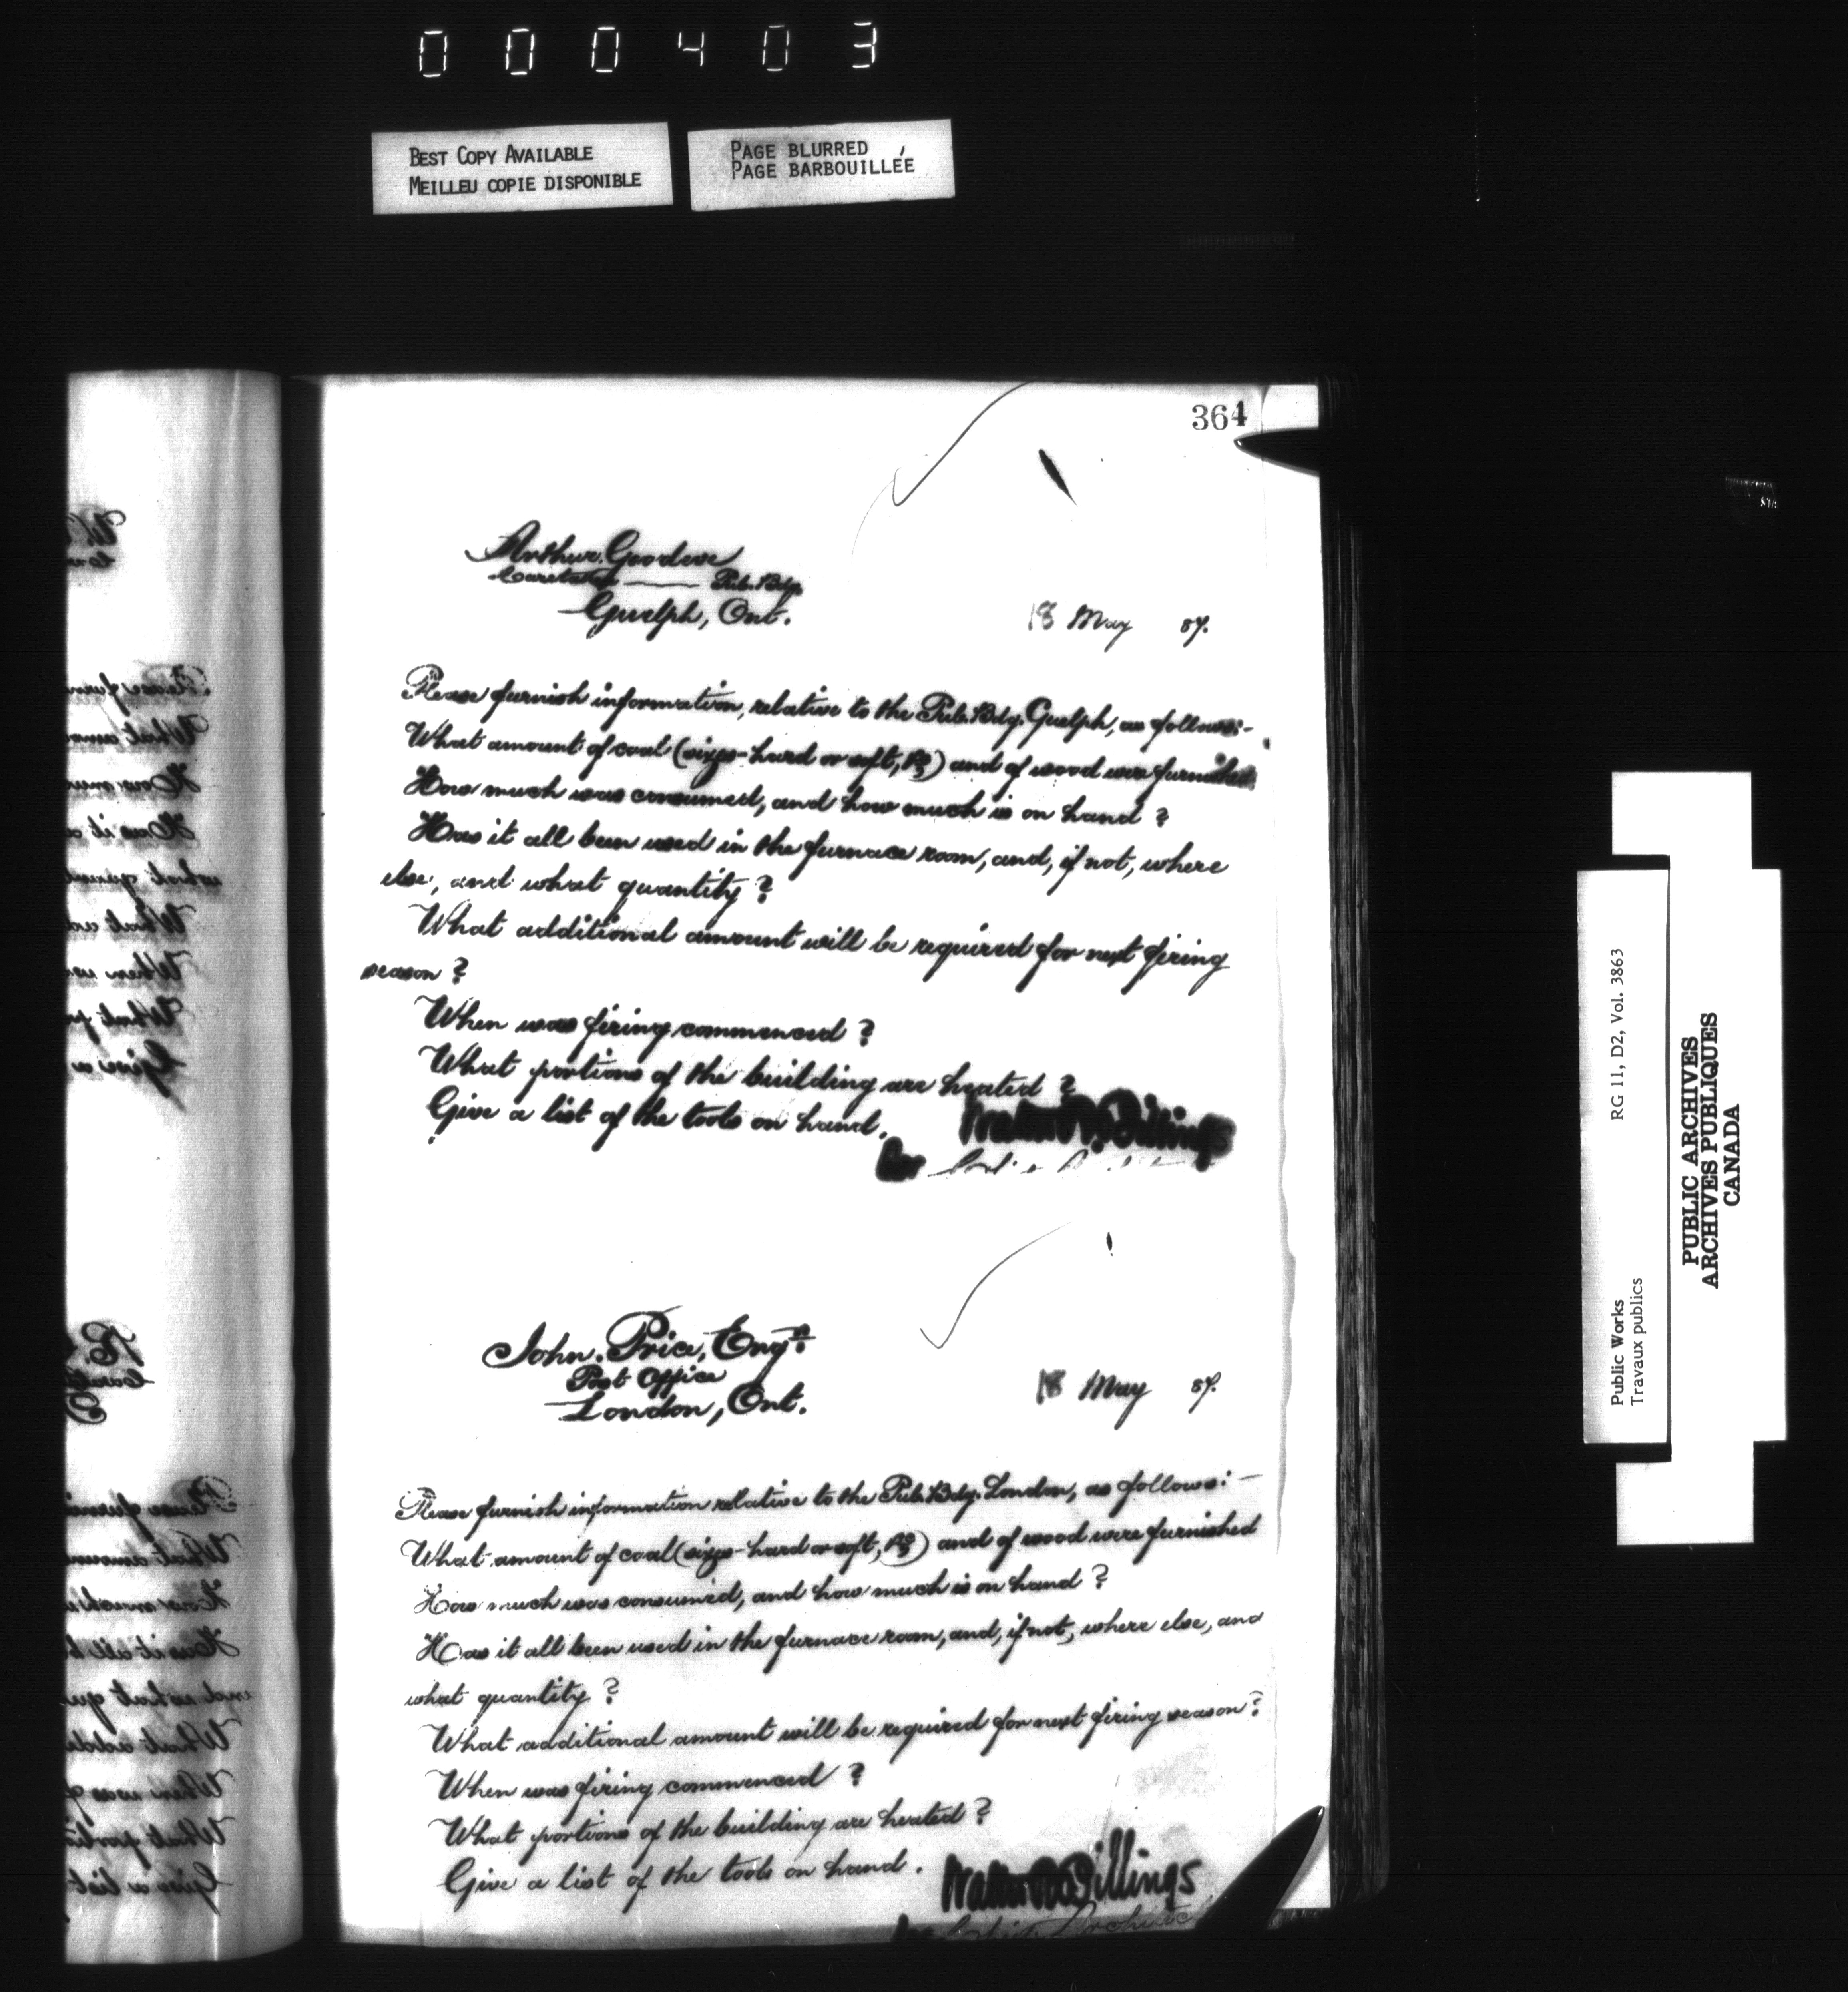 000403
BEST COPY AVAILABLE
MEILLEU COPIE DISPONIBLE
PAGE BLURRED
PAGE BARBOUILLÉE
364
Arthur Goodeve
Caretaker — Pub. Bdg.
Guelph, Ont.
18 May 87.
Please furnish information, relative to the Pub. Bdg. Guelph, as follows:-
What amount of coal (sizes - hard or soft, &c) and of wood were furnished
How much was consumed, and how much is on hand?
Has it all been used in the furnace room, and, if not, where
else, and what quantity?
What additional amount will be required for next firing
season?
When was firing commenced?
What portions of the building are heated?
Give a list of the tools on hand.
Walter R. Billings
for
John Price, Engr.
Post Office
London, Ont.
18 May 87.
Please furnish information relative to the Pub. Bdg. London, as follows:-
What amount of coal (sizes - hard or soft, &c) and of wood were furnished
How much was consumed, and how much is on hand?
Has it all been used in the furnace room, and, if not, where else, and
what quantity?
What additional amount will be required for next firing season?
When was firing commenced?
What portions of the building are heated?
Give a list of the tools on hand.
Walter R. Billings
for Chief Architect
Public Works
Travaux publics
RG 11, D2, Vol. 3863
PUBLIC ARCHIVES
ARCHIVES PUBLIQUES
CANADA